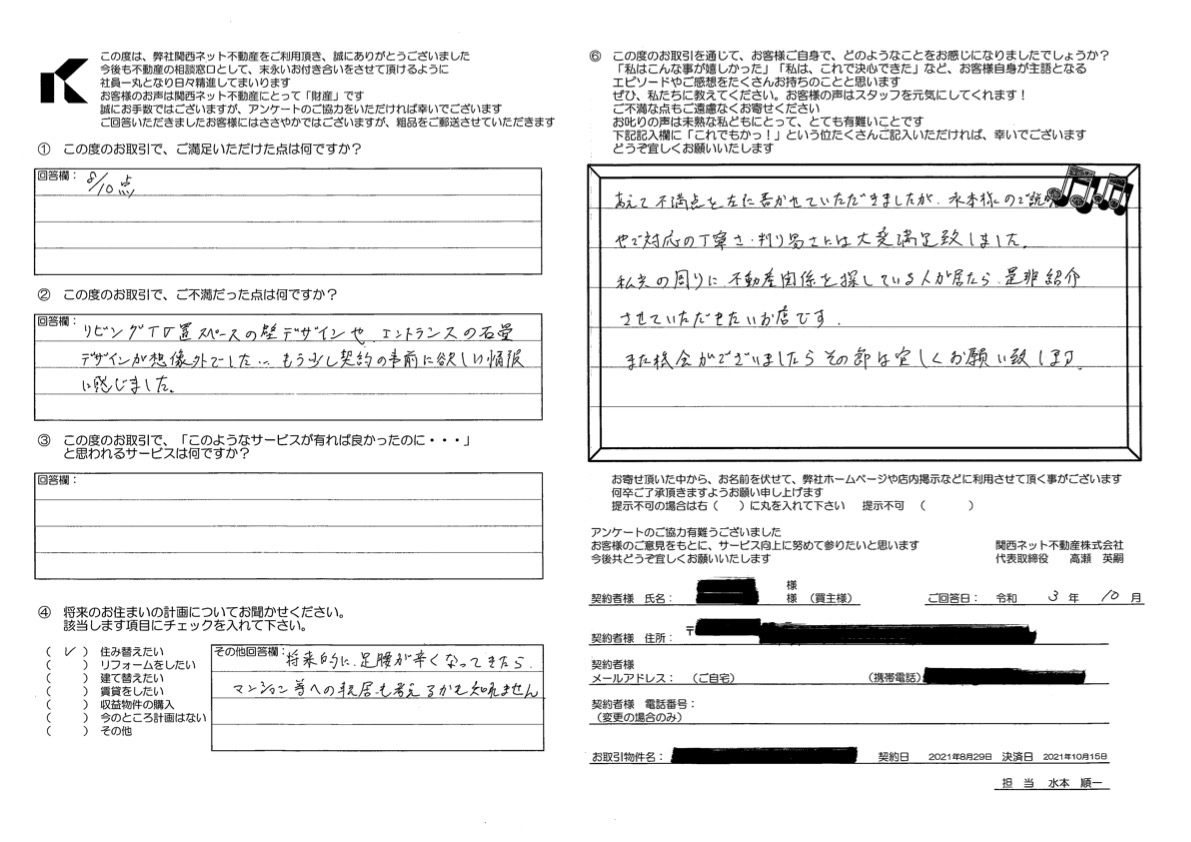 この度は、弊社関西ネット不動産をご利用頂き、誠にありがとうございました
今後も不動産の相談窓口として、末永いお付き合いをさせて頂けるように
社員一丸となり日々精進してまいります
お客様のお声は関西ネット不動産にとって「財産」です
誠にお手数ではございますが、アンケートのご協力をいただければ幸いでございます
ご回答いただきましたお客様にはささやかではございますが、粗品をご郵送させていただきます
① この度のお取引で、ご満足いただけた点は何ですか？
回答欄： 8/10点
② この度のお取引で、ご不満だった点は何ですか？
回答欄： リビングTV置スペースの壁デザインや、エントランスの石畳
デザインが想像外でした… もう少し契約の事前に欲しい情報
に感じました。
③ この度のお取引で、「このようなサービスが有れば良かったのに・・・」
と思われるサービスは何ですか？
回答欄：
④ 将来のお住まいの計画についてお聞かせください。
該当します項目にチェックを入れて下さい。
（ ✓ ） 住み替えたい
（ ） リフォームをしたい
（ ） 建て替えたい
（ ） 賃貸をしたい
（ ） 収益物件の購入
（ ） 今のところ計画はない
（ ） その他
その他回答欄： 将来的に、足腰が辛くなってきたら、
マンション等への転居も考えるかも知れません
⑥ この度のお取引を通じて、お客様ご自身で、どのようなことをお感じになりましたでしょうか？
「私はこんな事が嬉しかった」「私は、これで決心できた」など、お客様自身が主語となる
エピソードやご感想をたくさんお持ちのことと思います
ぜひ、私たちに教えてください。お客様の声はスタッフを元気にしてくれます！
ご不満な点もご遠慮なくお寄せください
お叱りの声は未熟な私どもにとって、とても有難いことです
下記記入欄に「これでもかっ！」という位たくさんご記入いただければ、幸いでございます
どうぞ宜しくお願いいたします
あえて不満点を左に書かせていただきましたが、水本様のご説明
やご対応の丁寧さ・判り易さには大変満足致しました。
私共の周りに不動産関係を探している人が居たら、是非紹介
させていただきたいお店です。
また機会がございましたらその節は宜しくお願い致します。
お寄せ頂いた中から、お名前を伏せて、弊社ホームページや店内掲示などに利用させて頂く事がございます
何卒ご了承頂きますようお願い申し上げます
提示不可の場合は右（ ）に丸を入れて下さい 提示不可 （ ）
アンケートのご協力有難うございました
お客様のご意見をもとに、サービス向上に努めて参りたいと思います
今後共どうぞ宜しくお願いいたします
関西ネット不動産株式会社
代表取締役 高瀬 英嗣
契約者様 氏名： 様
様 （買主様） ご回答日： 令和 3 年 10 月
契約者様 住所： 〒
契約者様
メールアドレス： （ご自宅） （携帯電話）
契約者様 電話番号：
（変更の場合のみ）
お取引物件名： 契約日 2021年8月29日 決済日 2021年10月15日
担 当 水本 順一